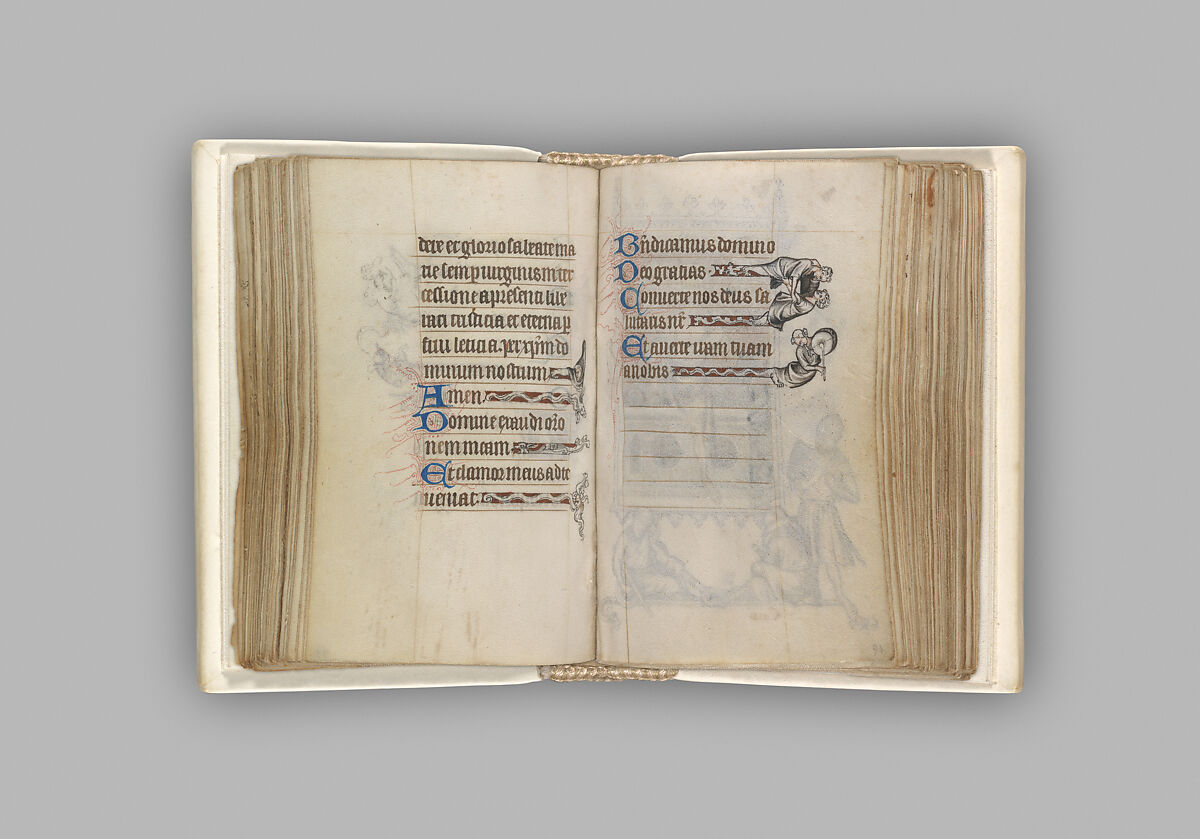 dete et gloriosa beate ma
rie semp uirginis inter
cessione a presenti libe
rari tristicia et eterna p
frui leticia. per xpm do
minum nostrum
Amen
Domine exaudi oro
nem meam
Et clamor meus ad te
ueniat.
Bndicamus domino
Deo gratias
Conuerte nos deus sa
lutaris nr
Et auerte iram tuam
a nobis
94